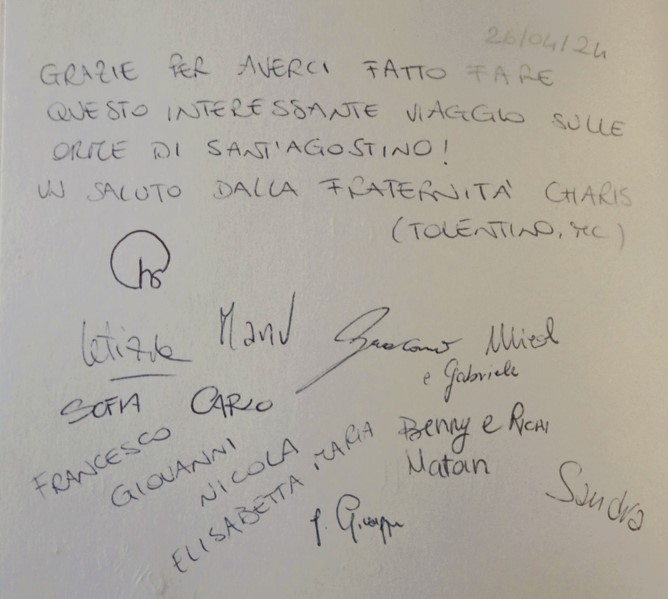 26/04/24
GRAZIE PER AVERCI FATTO FARE
QUESTO INTERESSANTE VIAGGIO SULLE
ORME DI SANT'AGOSTINO!
UN SALUTO DALLA FRATERNITÀ CHARIS
(TOLENTINO, MC)
Letizia Manu Micol
e Gabriele
SOFIA CARLO
FRANCESCO
GIOVANNI
NICOLA
ELISABETTA MARIA
Benny e RICHI
Sandra